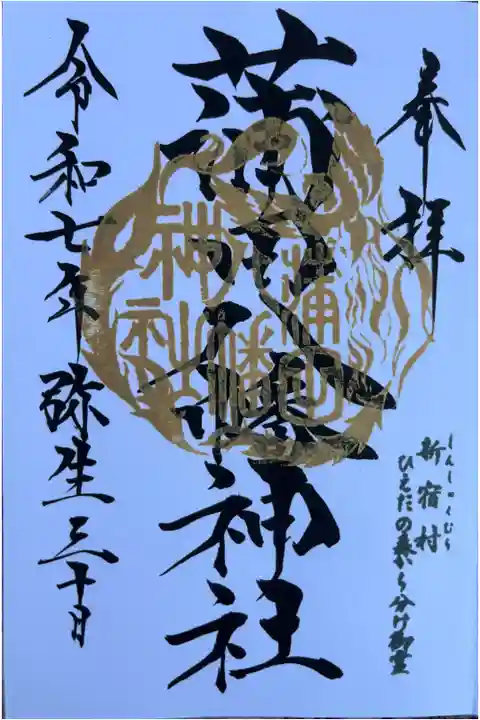 奉拝
しんしゅくむら
新宿村
ひえだの森から分け御霊
蒲田八幡神社
蒲田
八幡
神社
令和七年弥生三十日